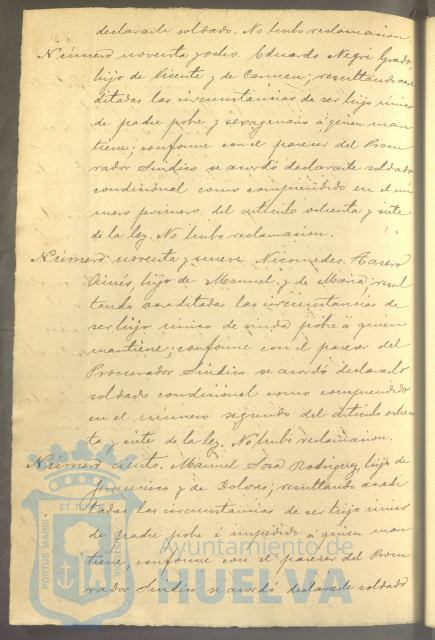 declararle soldado. No hubo reclamacion.
Número noventa y ocho. Eduardo Negre
hijo de Vicente y de Carmen; resultando acre
ditadas las circunstancias de ser hijo único
de padre pobre y sexagenario á quien man
tiene; conforme con el parecer del Procu
rador Síndico se acordó declararle soldado
condicional como comprendido en el nú
mero primero del artículo ochenta y siete
de la ley. No hubo reclamacion.
Número noventa y nueve. Nicomedes
hijo de Manuel y de María resul
tando acreditadas las circunstancias de
ser hijo único de viuda pobre á quien
mantiene; conforme con el parecer del
Procurador Síndico se acordó declararlo
soldado condicional como comprendido
en el número segundo del artículo ochen
ta y siete de la ley. No hubo reclamacion.
Número ciento. Manuel Sosa Rodriguez, hijo de
Francisco y de Dolores; resultando acredi
tadas las circunstancias de ser hijo único
de padre pobre é impedido á quien man
tiene, conforme con el parecer del Procu
rador Síndico se acordó declararle soldado
PORTUS MARIS ET TERRAE CUSTODIA
Ayuntamiento de
HUELVA